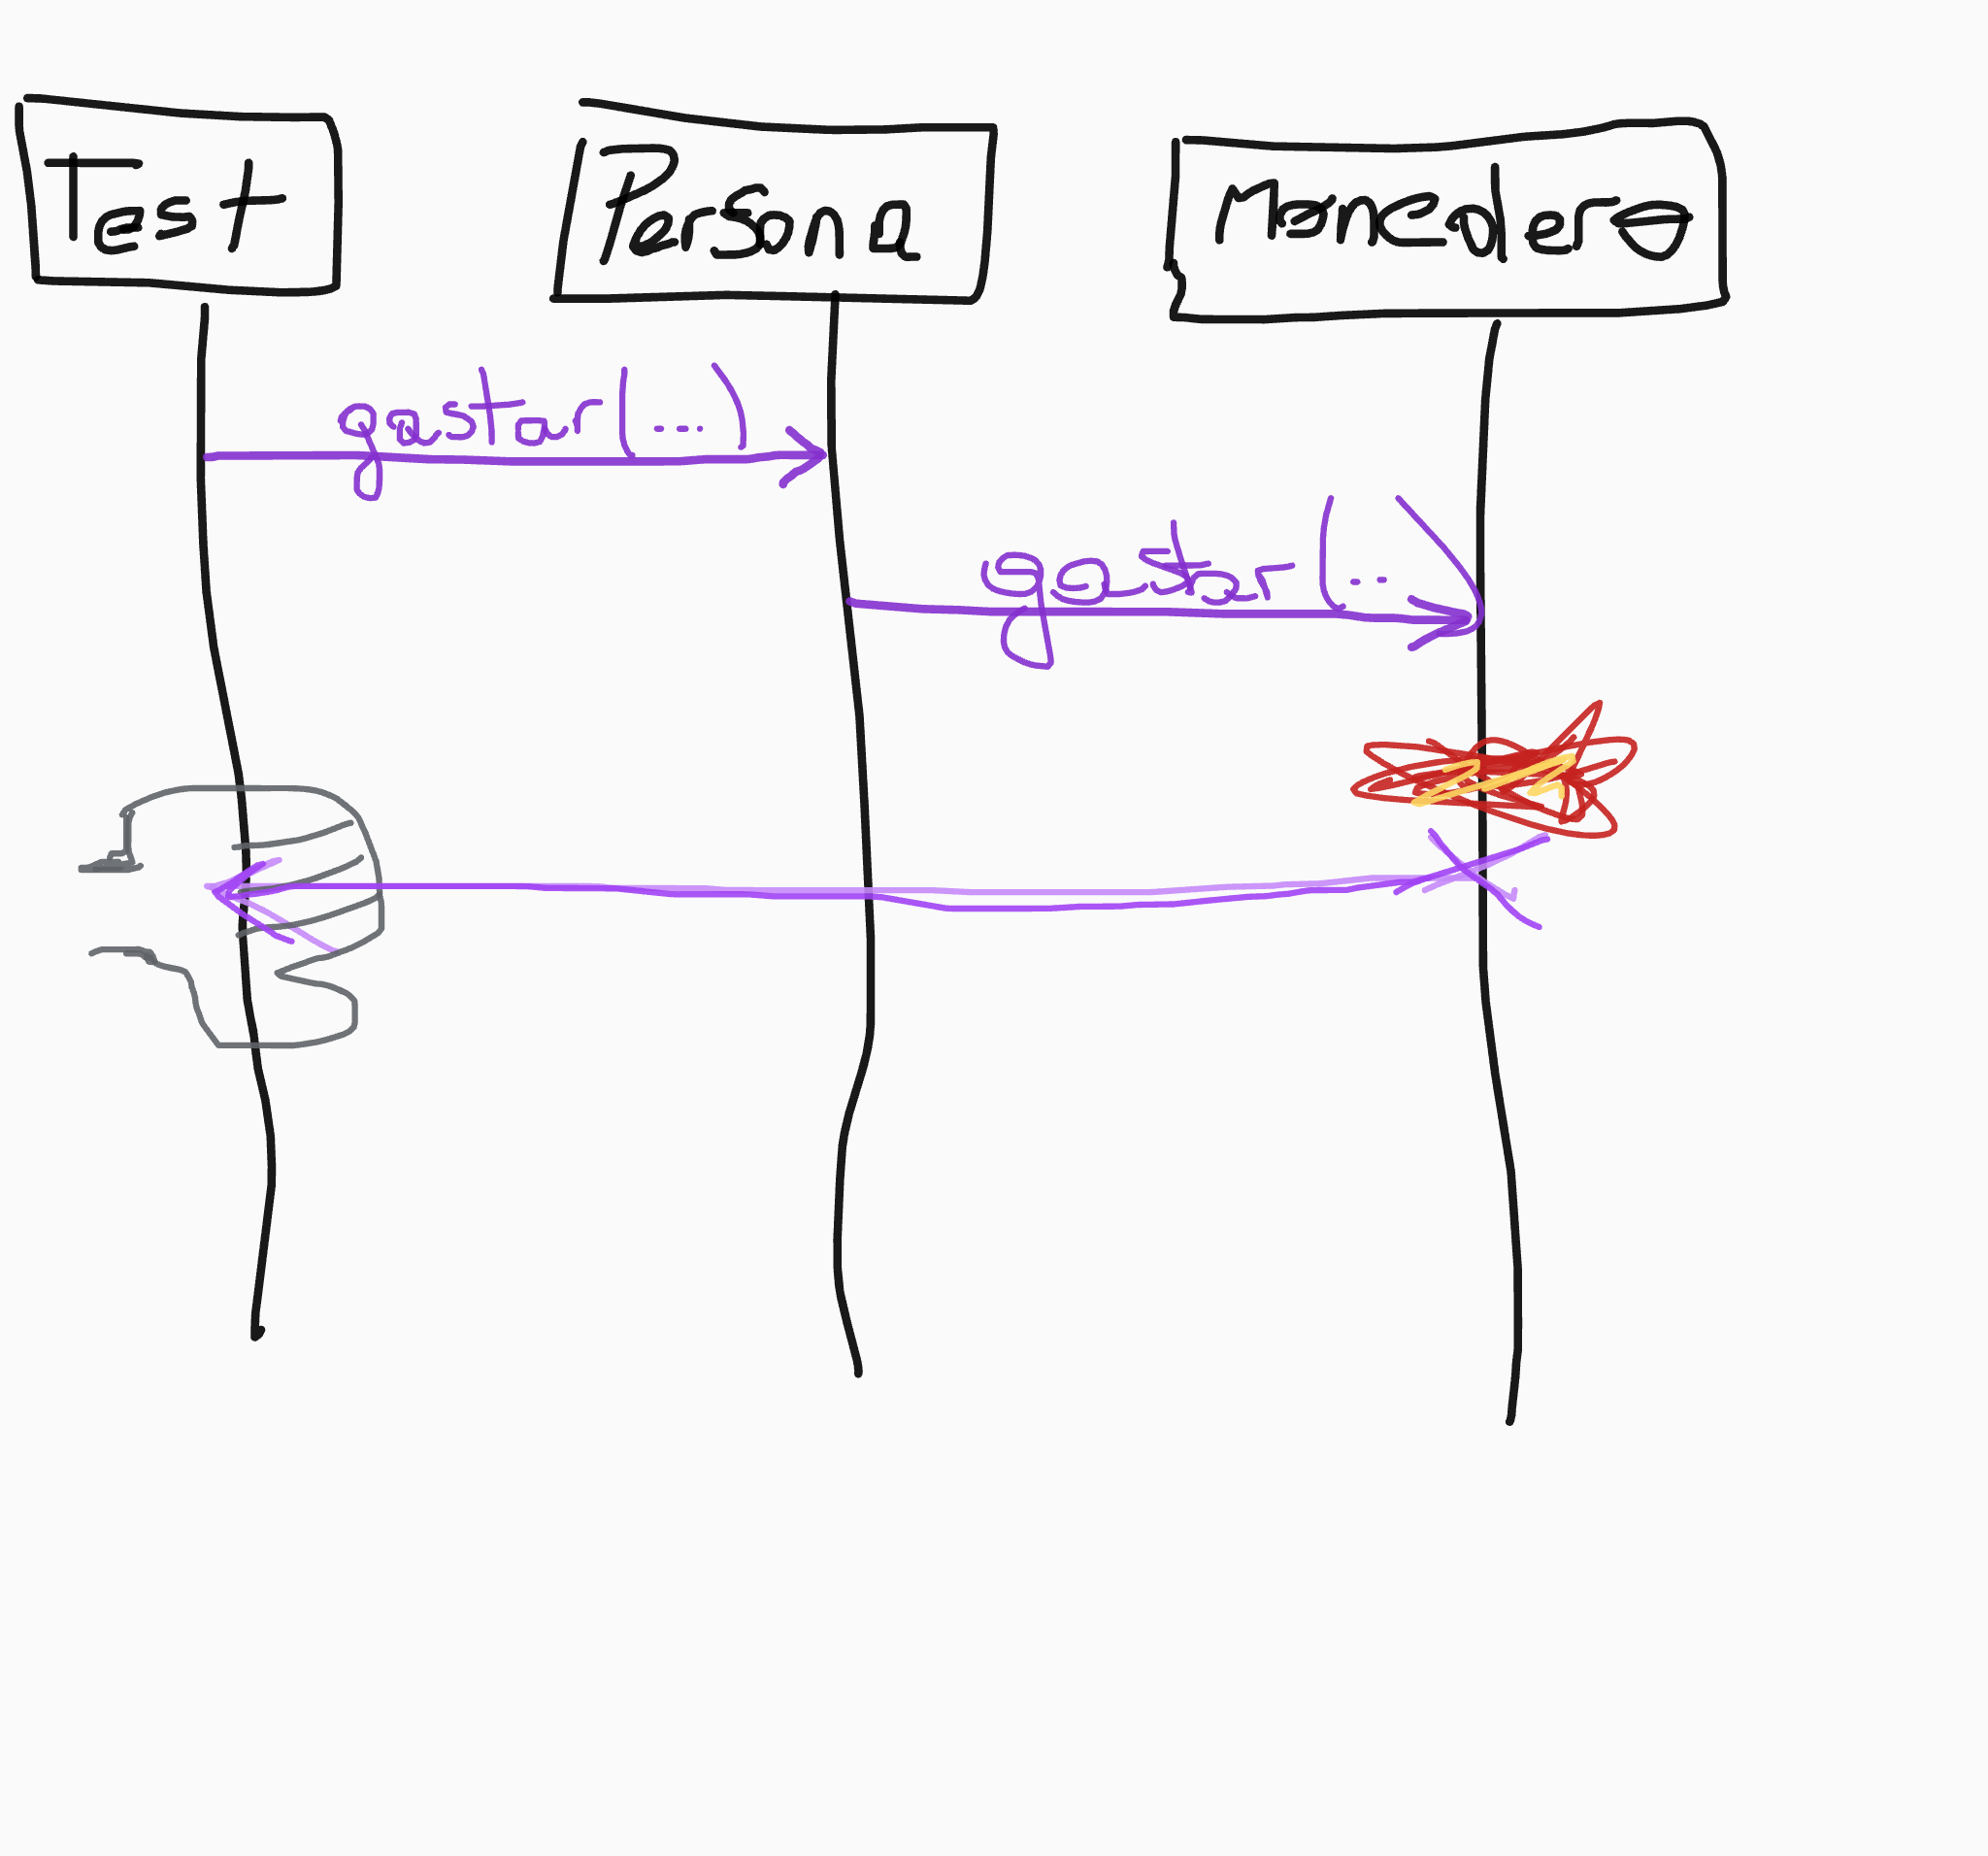 Test
Persona
Monedero
gastar(...)
gastar(...)